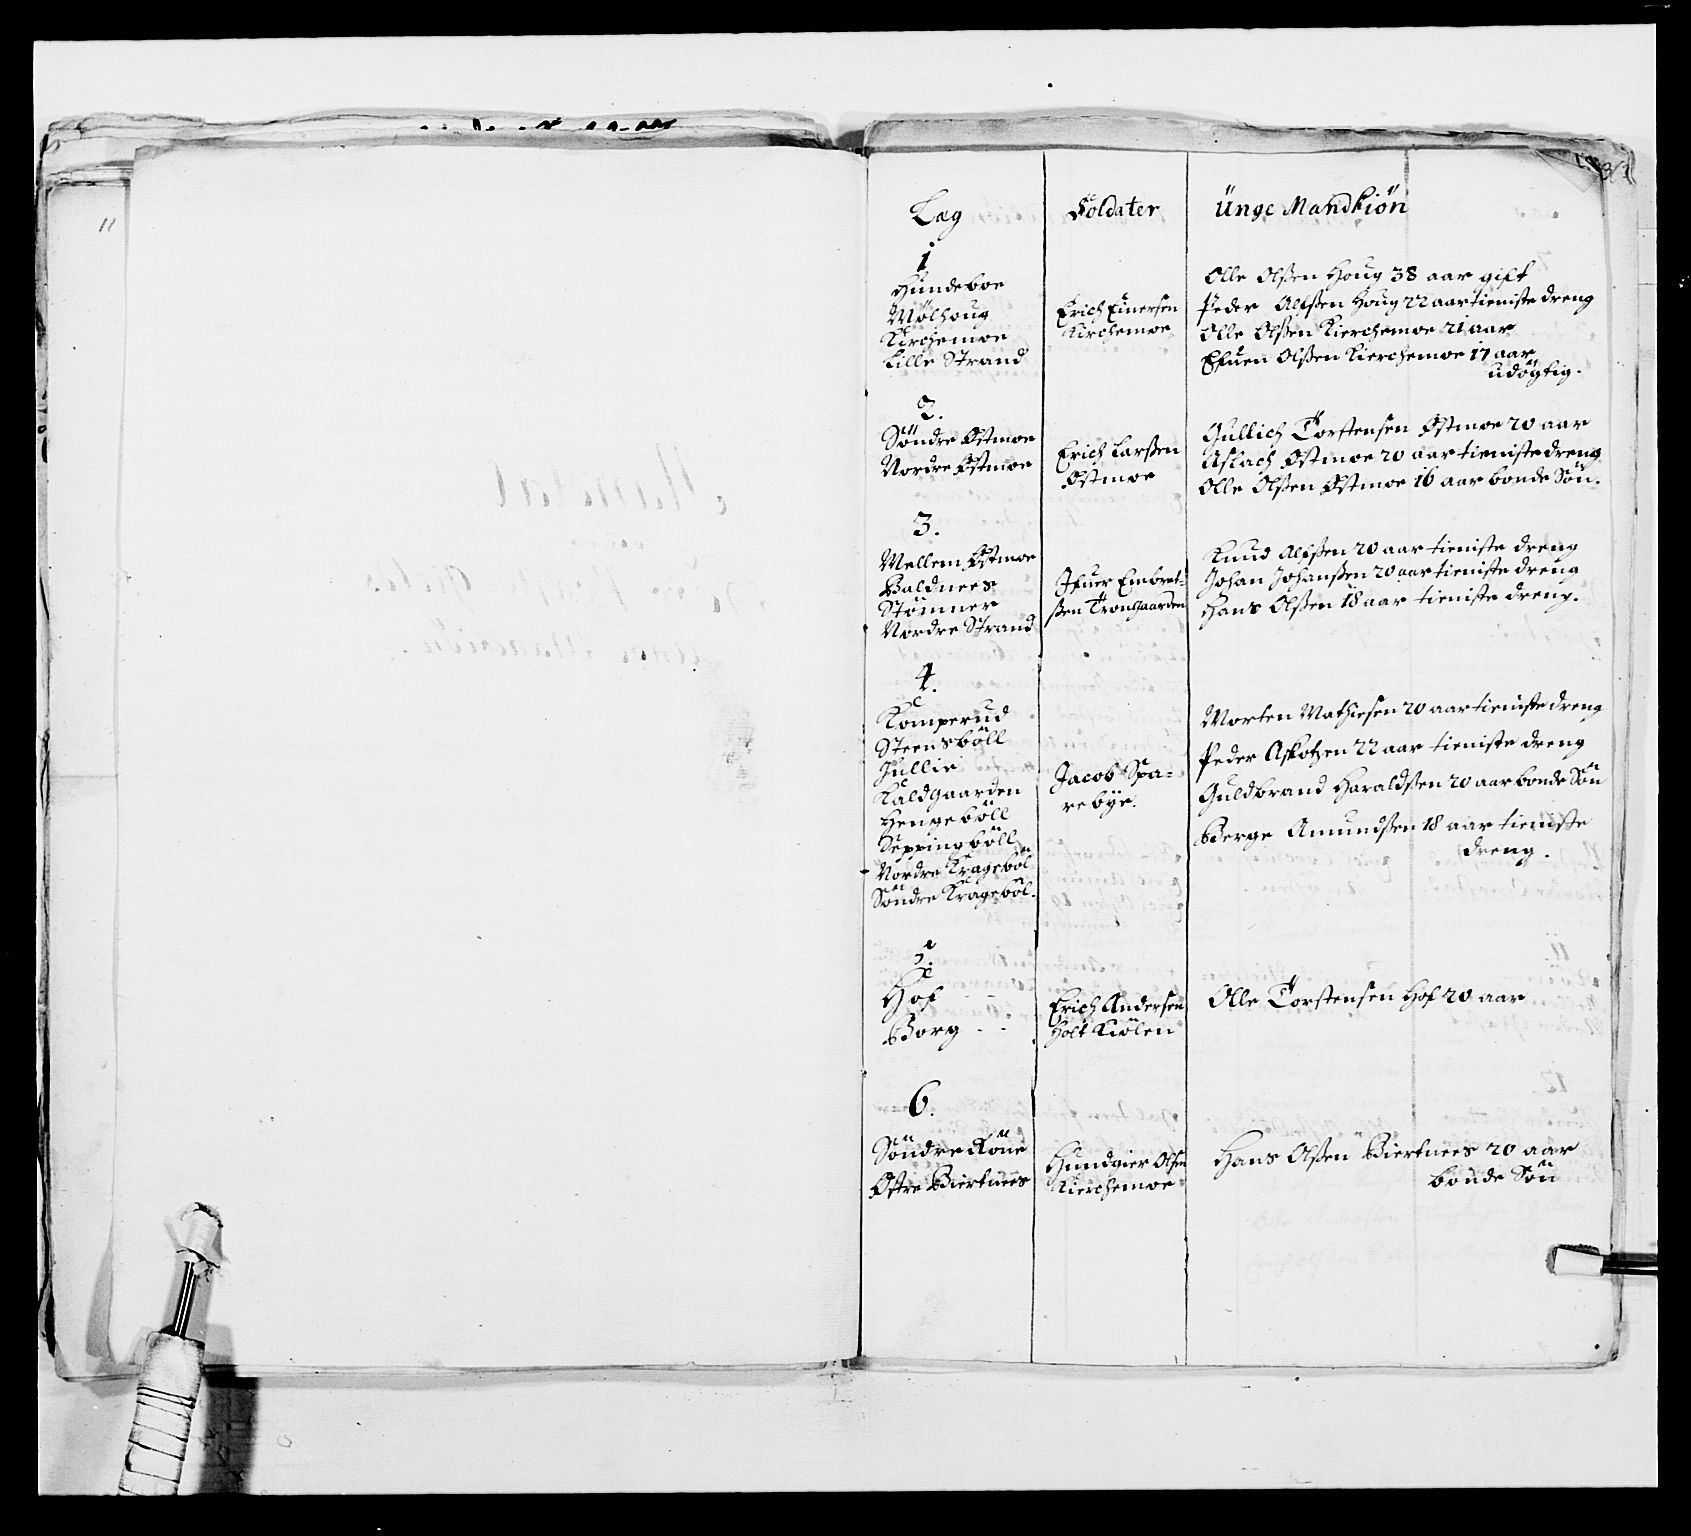 Læg
Soldater
Ünge Mandkiön
1
Hundeboe
Mölhoug
Kirchemoe
Lille Strand
Erich Einersen
Kirchemoe
Olle Olßen Houg 38 aar gift
Peder Alfßen Houg 22 aar tieniste dreng
Olle Olßen Kierchemoe 21 aar
Efuen Olßen Kierchemoe 17 aar
udögtig.
2.
Söndre Østmoe
Nordre Østmoe
Erich Larßen
Østmoe
Gullich Torstensen Østmoe 20 aar
Aslach Østmoe 20 aar tieniste dreng
Olle Olßen Østmoe 16 aar bonde Sön.
3.
Mellem Østmoe
Baldnees
Stömner
Nordre Strand
Ifuer Embret-
ßen Trongaarden
Knud Alfßen 20 aar tieniste dreng
Johan Johanßen 20 aar tieniste dreng
Hans Olßen 18 aar tieniste dreng.
4.
Komperud
Steensböll
Jullie
Kaldgaarden
Hengeböll
Seppingböll
Nordre Krageböl
Söndre Krageböl.
Jacob Spa-
rebye.
Morten Mathiesen 20 aar tieniste dreng
Peder Askotzen 22 aar tieniste dreng
Guldbrand Haraldßen 20 aar bonde Sön
Berge Amundßen 18 aar tieniste
dreng.
5.
Hof
Borg - -
Erich Andersen
Holt Kiölen
Olle Torstensen Hof 20 aar
6.
Söndre Röne
Østre Biertnees
Hundgier Olsen
Kierchemoe
Hans Olßen Biertnees 20 aar
bonde Sön